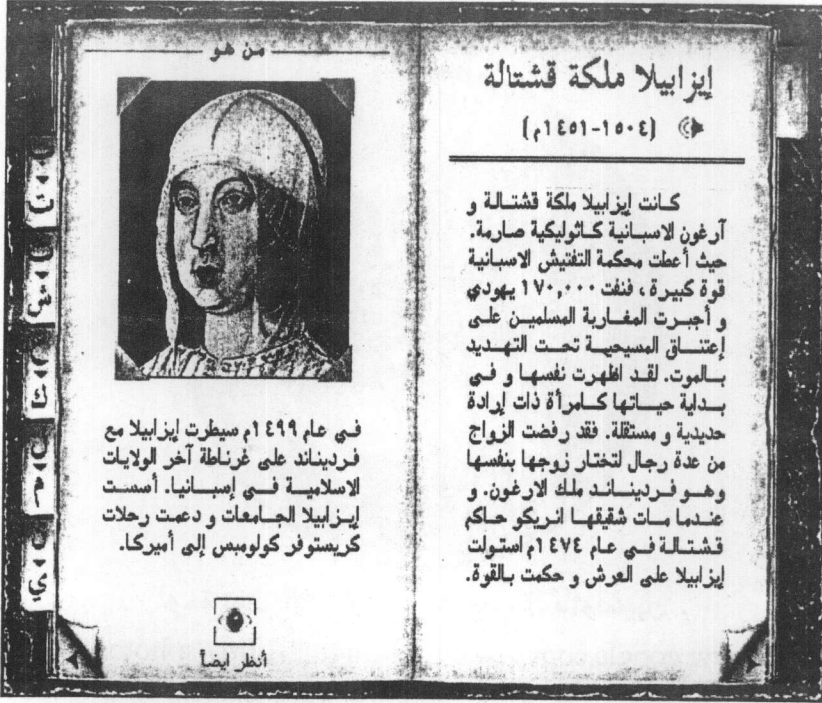 إيزابيلا ملكة قشتالة
(١٥٠٤-١٤٥١م)
كانت إيزابيلا ملكة قشتالة و
آرغون الاسبانية كاثوليكية صارمة.
حيث أعطت محكمة التفتيش الاسبانية
قوة كبيرة ، فنفت ١٧٠,٠٠٠ يهودي
و أجبرت المغاربة المسلمين على
إعتناق المسيحية تحت التهديد
بالموت. لقد اظهرت نفسها و في
بداية حياتها كامرأة ذات إرادة
حديدية و مستقلة. فقد رفضت الزواج
من عدة رجال لتختار زوجها بنفسها
وهو فرديناند ملك الارغون. و
عندما مات شقيقها انريكو حاكم
قشتالة في عام ١٤٧٤م استولت
إيزابيلا على العرش و حكمت بالقوة.
من هو
في عام ١٤٩٩م سيطرت إيزابيلا مع
فرديناند على غرناطة آخر الولايات
الاسلامية في إسبانيا. أسست
إيزابيلا الجامعات و دعمت رحلات
كريستوفر كولومبس إلى أميركا.
أنظر ايضاً